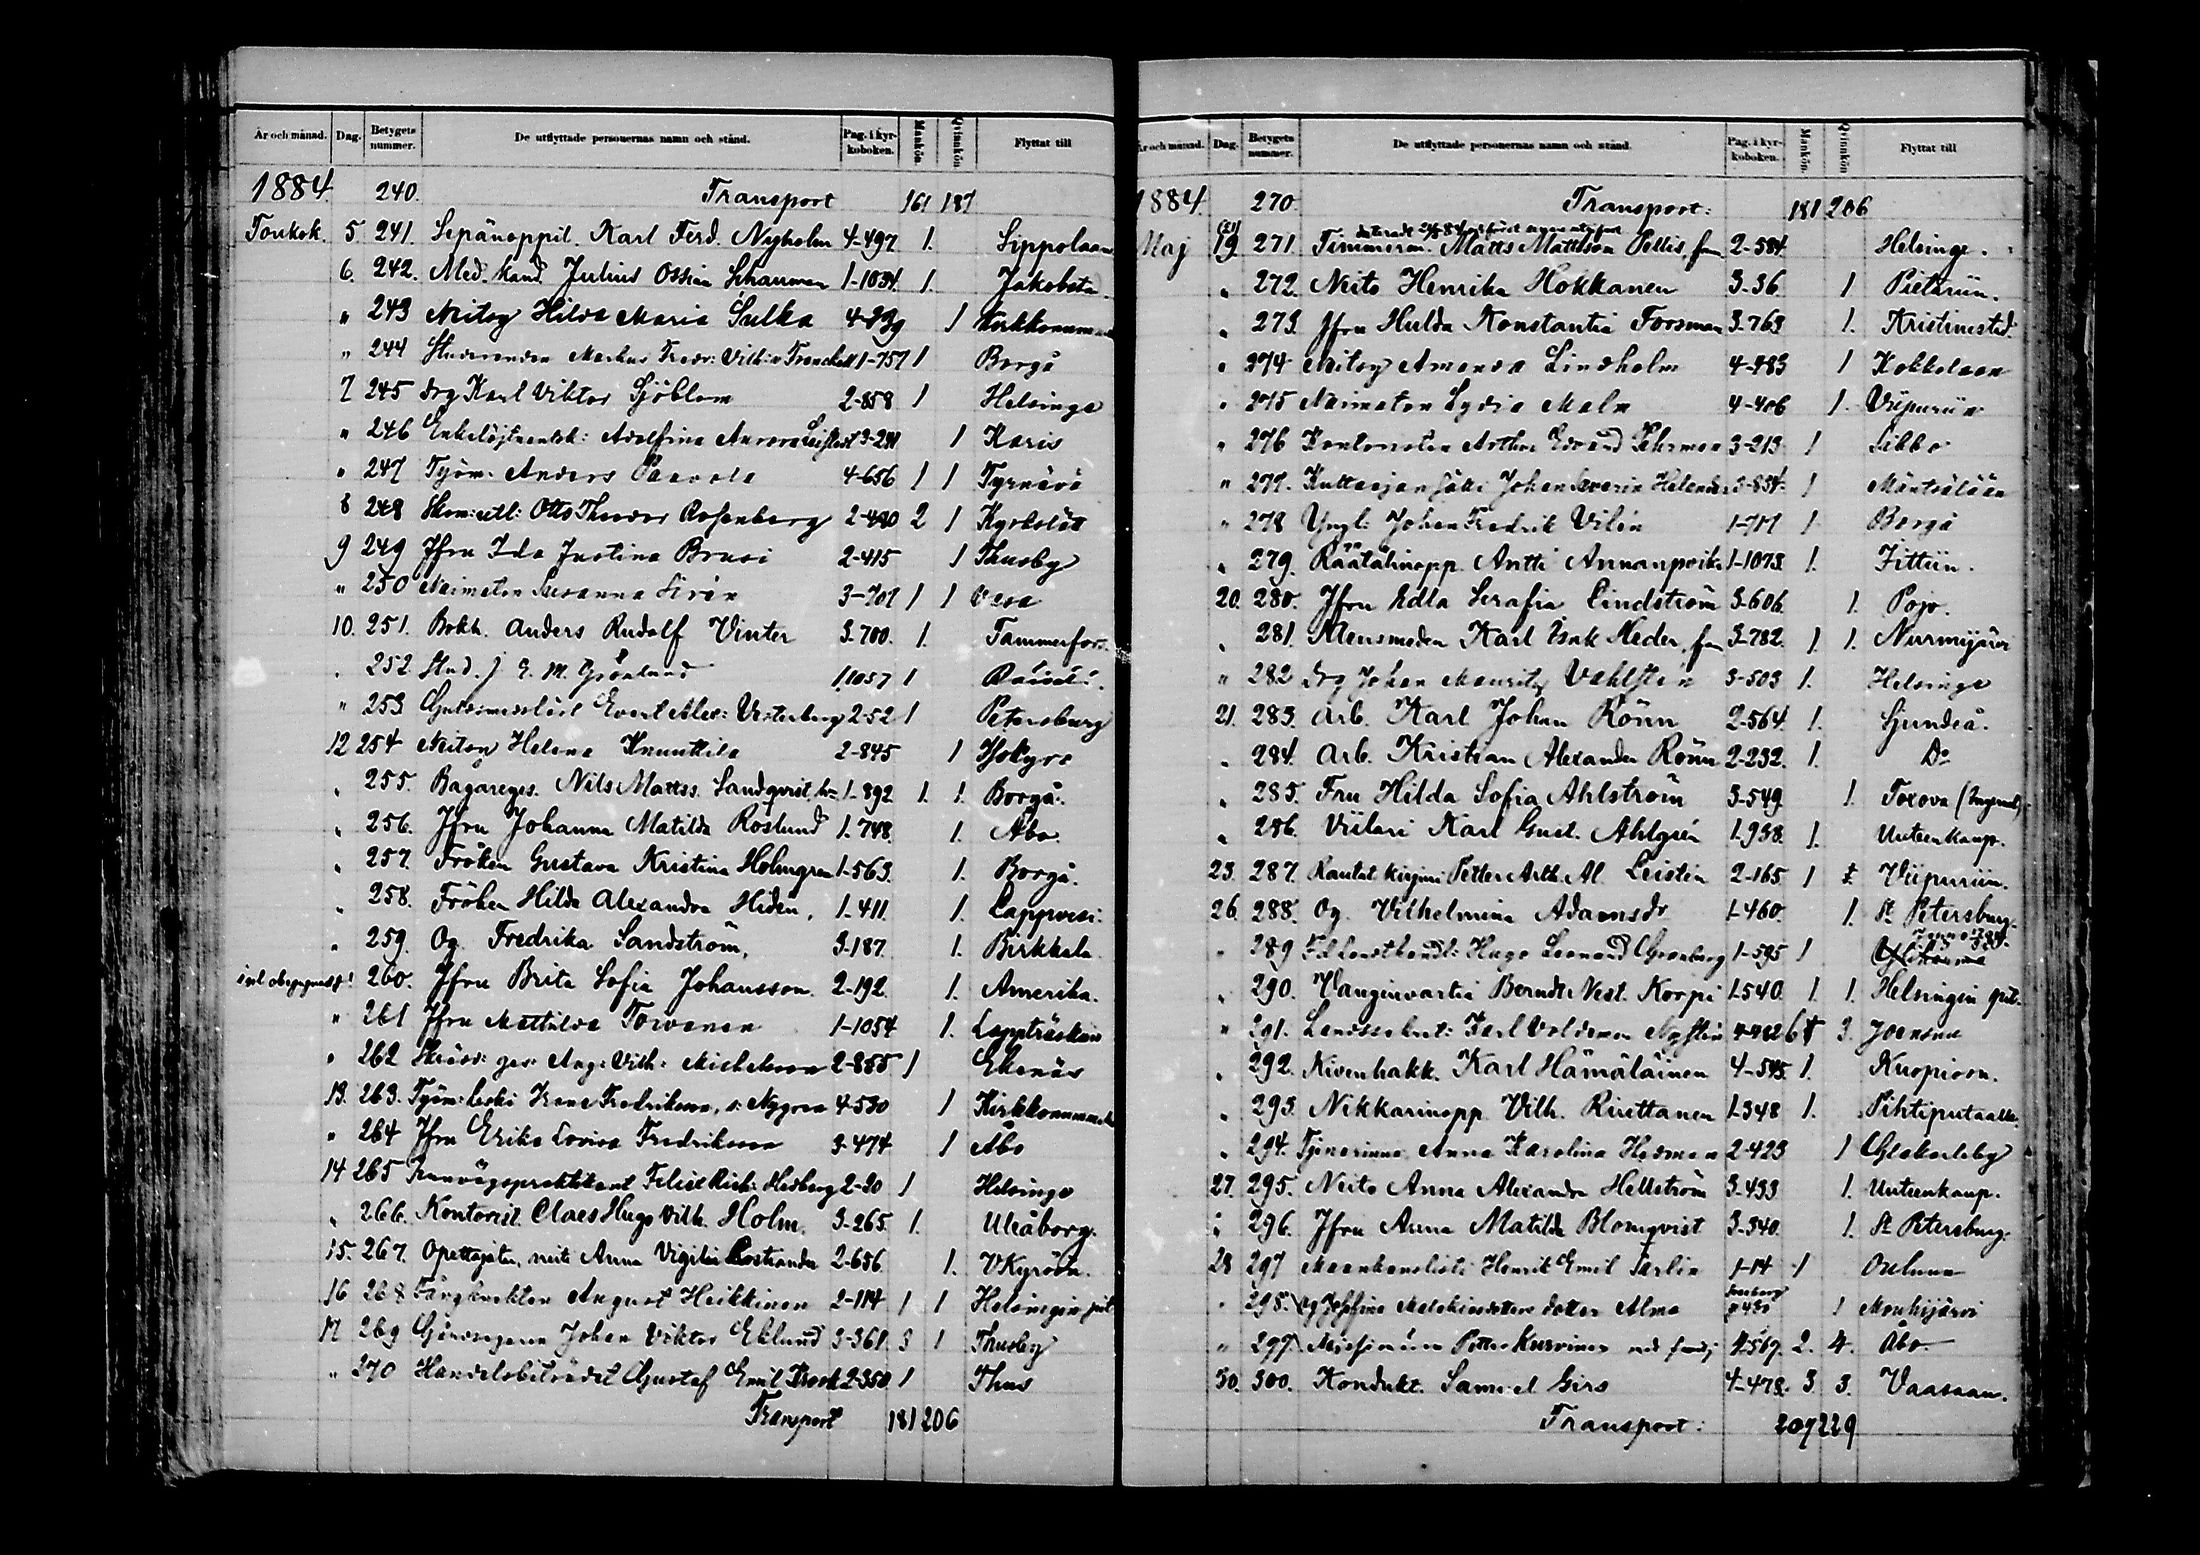 År och månad. Dag. Betygets nummer. De utflyttade personernas namn och stånd. Pag. i kyrkoboken. Mankön. Qvinnkön. Flyttat till
1884. 240. Transport 161 187
Toukok. 5. 241. Sepänoppil. Karl Ferd. Nyholm 4-497 1. Sippolaan
6. 242. Med. kand. Julius Ossian Schauman 1-1034. 1. Jakobsta
" 243 Neitsy Hilda Maria Sulka 4-239 1 Kirkkonumm
" 244 Studeranden Markus Fredr: Vilh: Frenckell 1-757 1 Borgå
7 245 Drg Karl Viktor Sjöblom 2-858 1 Helsinge
" 246 Adolfina Aurora 3-291 1 Karis
" 247 Työm. Anders Paavola 4-656 1 1 Tyrnävä
8 248 Otto Theodor Rosenberg 2-480 2 1 Kyrkslätt
9 249 Jfru Ida Justina Brusi 2-415 1 Thusby
" 250 Susanna Sirén 3-707 1 1 Vasa
10. 251. Bokh. Anders Rudolf Vinter 3-700. 1. Tammerfors.
252 Stud. J. E. M. Grönlund 1.1057 1
" 253 Evert Alex: Vesterberg 2-52 1 Petersburg
12 254 Neitsy Helena Knuuttila 2-845 1
" 255. Bagareges. Nils Mattss. Sandqvist, 1-892 1. 1. Borgå.
" 256. Jfru Johanna Matilda Roslund 1-748. 1. Åbo.
" 257. Fröken Gustava Kristina Holmgren 1-563. 1. Borgå.
" 258. Fröken Hilda Alexandra Hidén, 1-411. 1. Lappvesi.
" 259. Og. Fredrika Sandström, 3-187. 1. Birkkala
260. Jfru Brita Sofia Johansson. 2-192. 1. Amerika.
" 261 Jfru Mathilda Torvanen 1-1054 1. Lappträskiin
" 262 Aug: Vilh: Michelsson 2-855 1 Ekenäs
13. 263. Työm: leski Fredriksson, s: Nygren 4-530 1 Kirkkonumm
" 264 Jfru Erika Lovisa Fredriksson 3-474 1 Åbo
14 265 Jernvägspraktikant Felix Rich: Hedberg 2-20 1 Helsinge
" 266. Kontorist. Claes Hugo Vilh. Holm. 3-265. 1. Uleåborg.
15. 267. Opettajatar, neiti Anna Vigilia 2-656 1. VKyröön.
16 268 Fångknekten August Heikkinen 2-114 1 1 Helsingin pit
17 269 Gårdsegaren Johan Viktor Eklund 3-361. 3 1 Thusby
" 270 Handelsbiträdet Gustaf Emil 2-350 1 Thus
Transport 181 206
År och månad. Dag. Betygets nummer. De utflyttade personernas namn och stånd. Pag. i kyrkoboken. Mankön. Qvinnkön Flyttat till
1884. 270. Transport: 181 206
Maj 19. 271. Timmerm. Matts Mattsson Pellis, fm 2-584. Helsinge.
" 272. Neito Henrika Hokkanen 3-36. 1 Pietariin.
" 273. Jfru Hulda Konstantia Forsman 3-763 1. Kristinestad
" 274 Neitsy Amanda Lindholm 4-483 1 Kokkolaan
" 275 Lydia Malm 4-406 1. Viipuriin
" 276 Kontoristen Arthur Edvard 3-213 1 Sibbo
" 277. Johan Severin Helander 3-834. 1 Mäntsälään
" 278 Yngl: Johan Fredrik Vilén 1-707 1 Borgå
" 279. Räätälinopp. Antti Annanpoika 1-1073. 1. Iittiin.
20. 280. Jfru Edla Serafia Lindström 3-606. 1. Pojo.
" 281. Karl Isak Heder, fm 3-782. 1 1. Nurmijärvi
" 282 Drg Johan Mauritz Vahlstén 3-503 1. Helsinge
21. 283. Arb. Karl Johan Rönn 2-564. 1. Sjundeå.
" 284. Arb. Kristian Alexander Rönn 2-232. 1. Do
" 285. Fru Hilda Sofia Ahlström 3-549 1. Toxova (Ingermanl)
" 286. Viilari Karl Gust. Ahlgrén 1-938. 1. Uuteenkaup.
23. 287. Rautat. kirjuri Petter Arth. Al. Leistén 2-165 1 Viipuriin.
26. 288. Og. Vilhelmina Adamsdr 1-460. 1. St Petersburg.
" 289 Hugo Leonard Grönberg 1-595 1
" 290. Vanginvartia Berndt Nest. Korpi 1-540. 1. 1. Helsingin pit.
" 291. Karl Voldemar 4-462 6 3. Joensuu
" 292. Kivenhakk. Karl Hämäläinen 4-545. 1. Kuopioon.
" 293. Nikkarinopp. Vilh. Ruuttanen 1-348 1. Pihtiputaalle
" 294. Tjenarinna Anna Karolina Hedman 2-423 1 Gamlakarleby
27. 295. Neito Anna Alexandra Hellström 3-433 1. Uuteenkaup.
" 296. Jfru Anna Matilda Blomqvist 3-340. 1. St Petersburg.
28 297 Maankanslisti Henrik Emil Sarlin 1-14 1 Ouluun
" 298. Og Josefina dotter Alma 1
" 299 Petter Kurvinen med familj 4-569. 2. 4. Åbo
30. 300. Kondukt. Samuel Girs 4-478. 3 3. Vaasaan.
Transport: 207 229